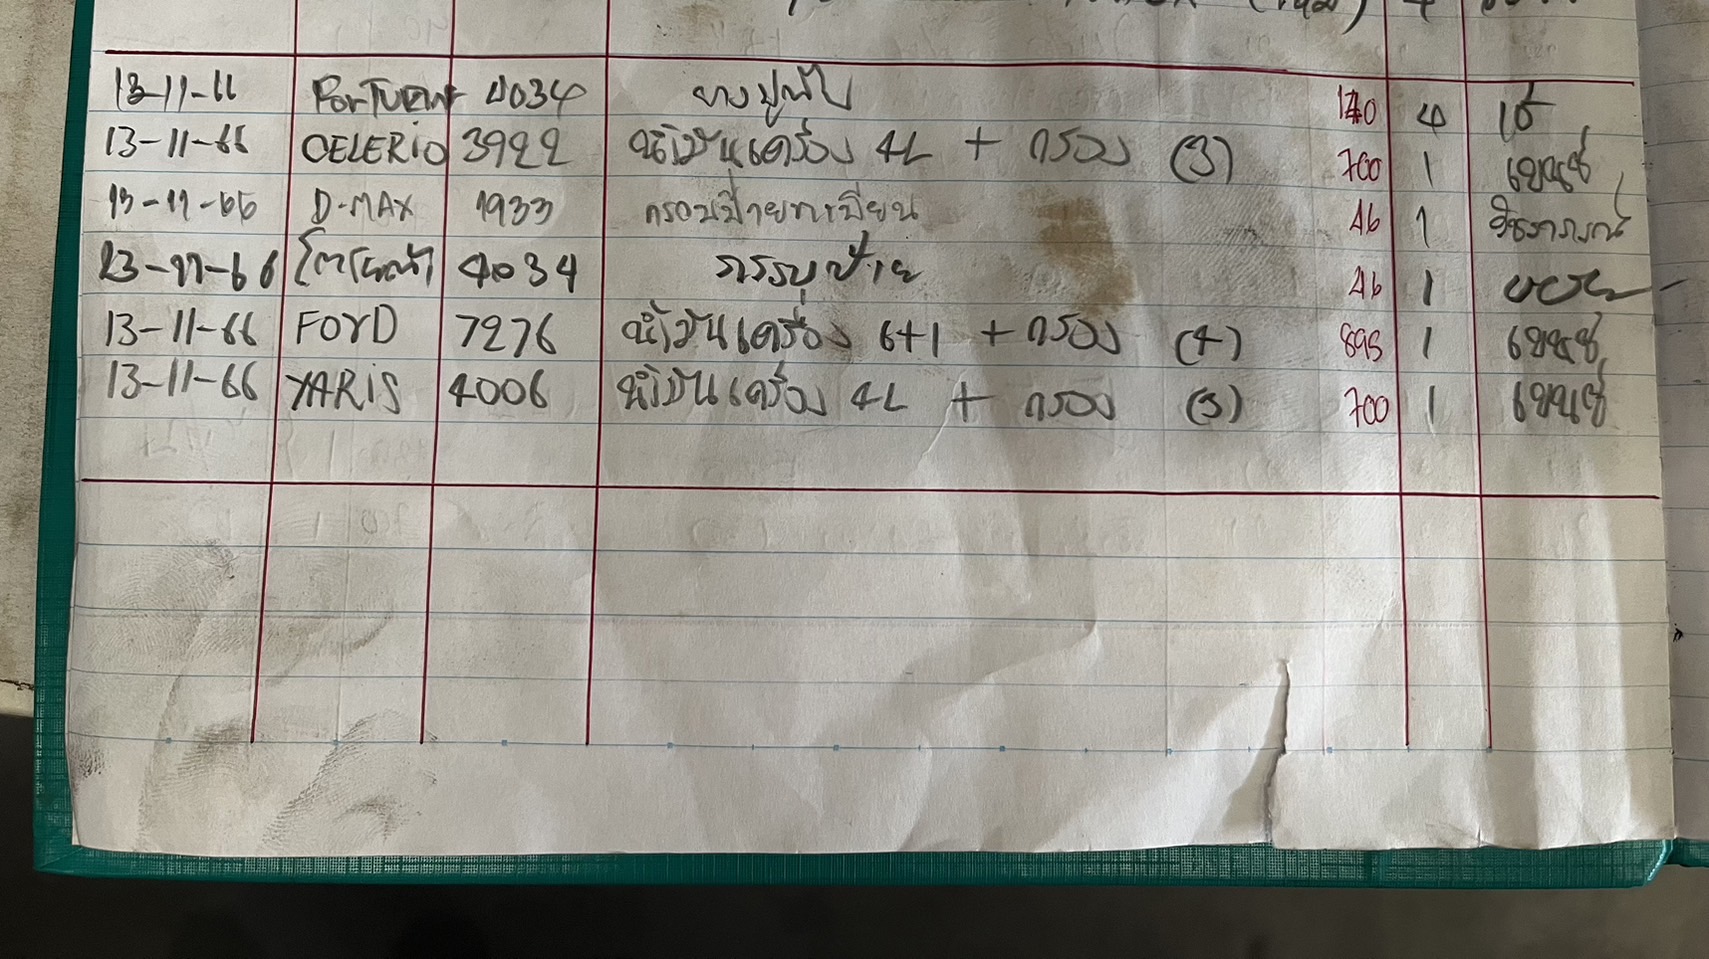 13-11-66 Forturner 4034 ยางปูพื้น 140 4 เช้
13-11-66 CELERiO 3922 น้ำมันเครื่อง 4L + กรอง (3) 700 1
13-11-66 D-MAX 1933 กรอบป้ายทะเบียน 46 1
13-11-66 โตโยต้า 4034 กรอบป้าย 46 1
13-11-66 FORD 7276 น้ำมันเครื่อง 6+1 + กรอง (4) 895 1
13-11-66 YARiS 4006 น้ำมันเครื่อง 4L + กรอง (3) 700 1